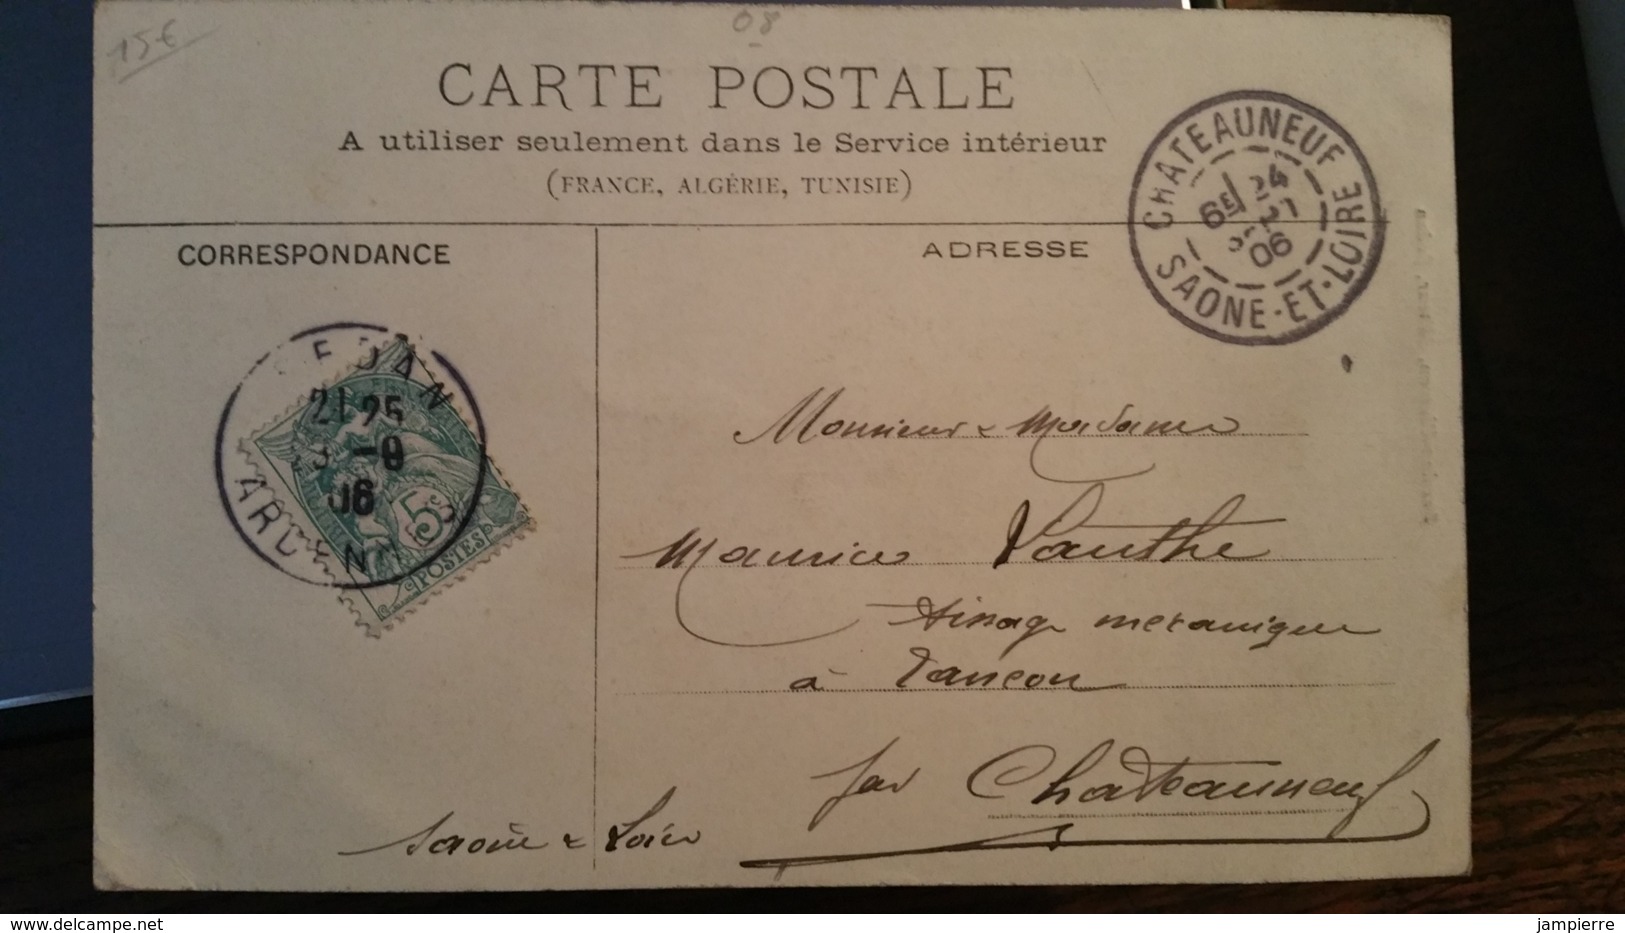 15€
08
CARTE POSTALE
A utiliser seulement dans le Service intérieur
(FRANCE, ALGÉRIE, TUNISIE)
CORRESPONDANCE
ADRESSE
CHATEAUNEUF
6E 24
06
SAONE-ET-LOIRE
SEDAN
21 25
-9
06
ARDENNES
5c
POSTES
Monsieur & Madame
Maurice Vauthe
tissage mecanique
à Tancon
par Chateauneuf
Saone & Loire
delcampe.net
jampierre